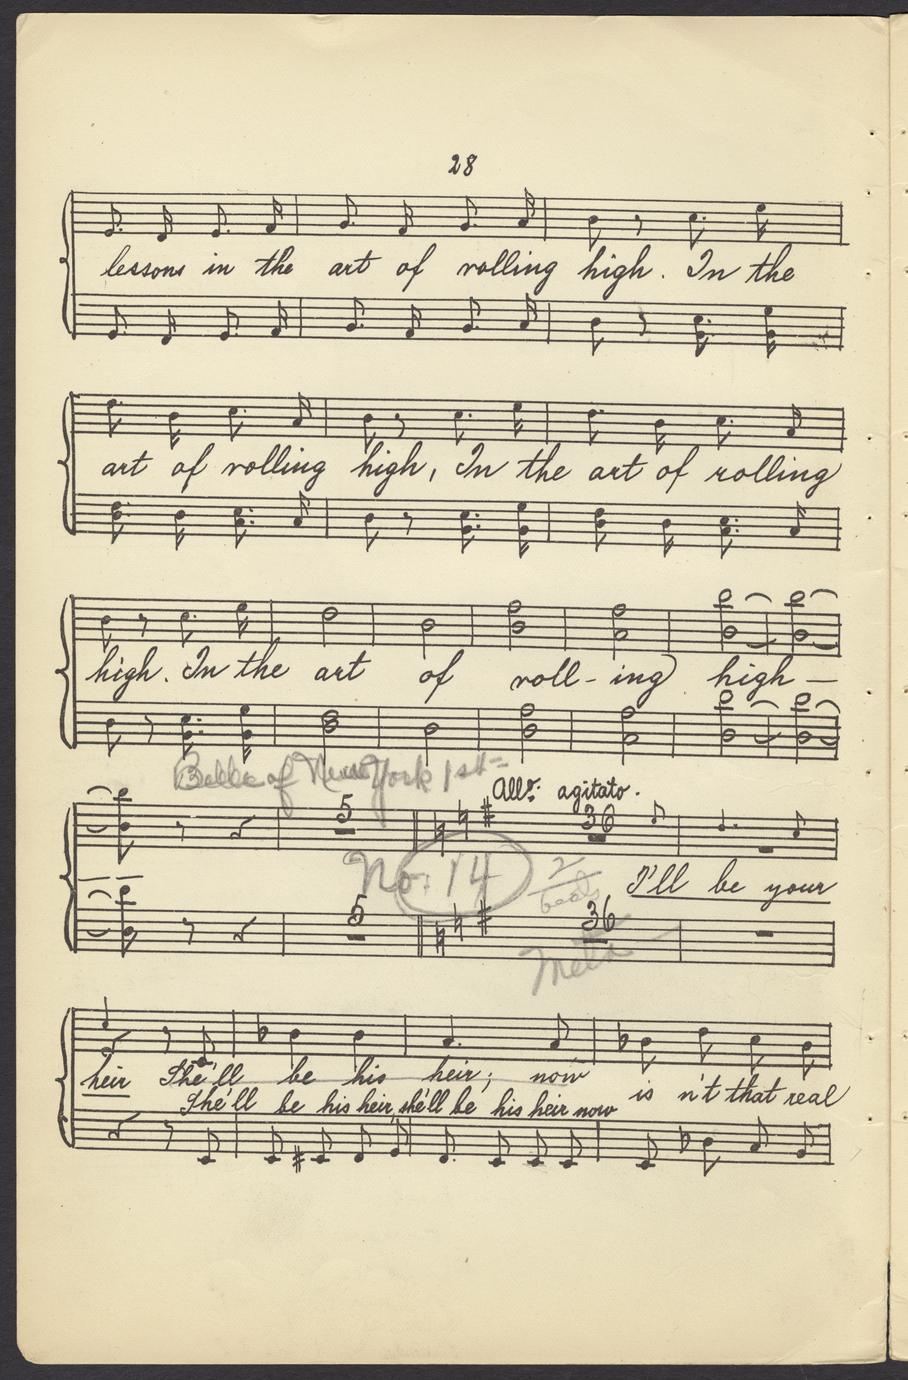 28
lessons in the art of rolling high. In the
art of rolling high, In the art of rolling
high. In the art of roll-ing high —
Belle of New York 1st
All? agitato.
5 36
No. 14 2 beats I'll be your
5 36
heir She'll be his heir; now is n't that real
She'll be his heir, she'll be his heir now